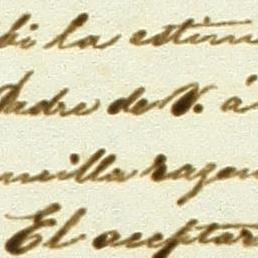 bi la estim
Padre de V. á
ncilla razon
El aceptar